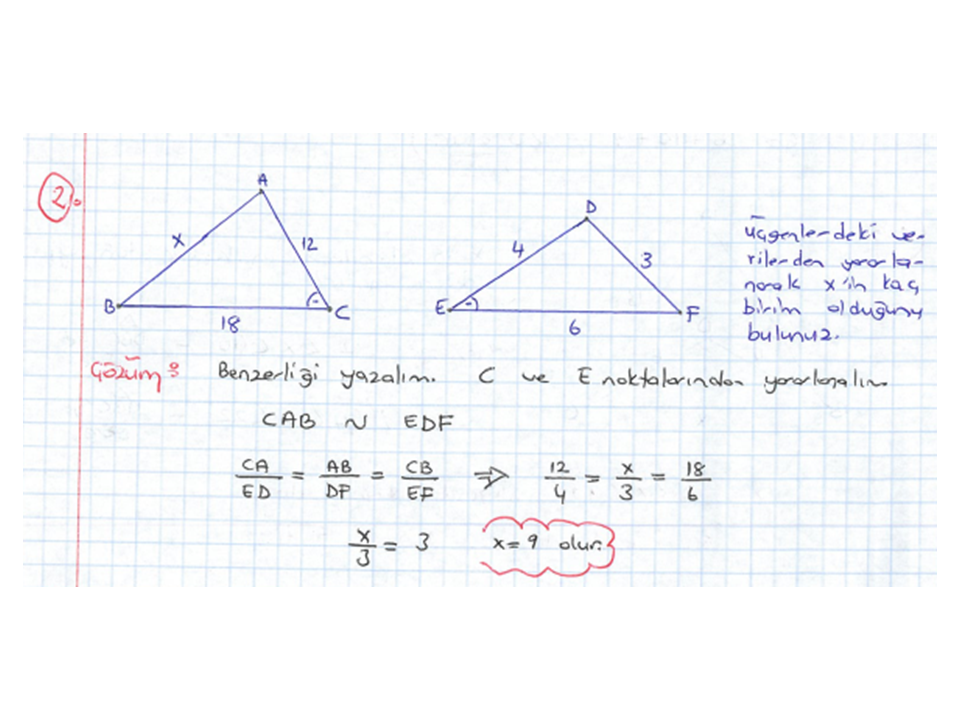 2.
A
x
12
B
C
18
D
4
3
E
F
6
Üçgenlerdeki ve-
rilerden yararla-
narak x'in kaç
birim olduğunu
bulunuz.
Çözüm: Benzerliği yazalım. C ve E noktalarından yararlanalım
CAB ~ EDF
CA/ED = AB/DF = CB/EF ⇒ 12/4 = x/3 = 18/6
x/3 = 3 x=9 olur.